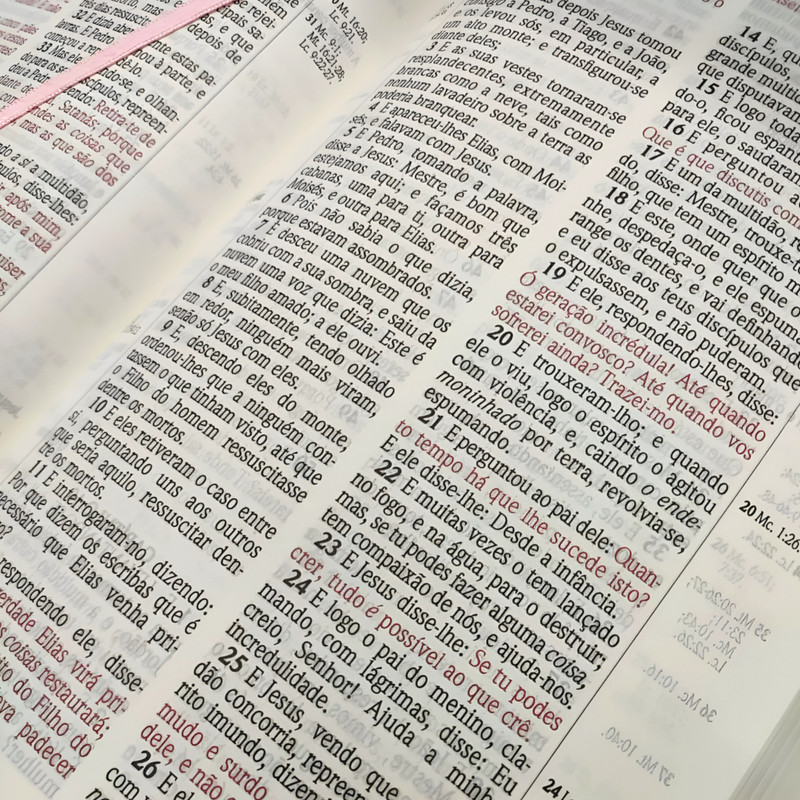 9; 16:20.
31 Mt.
Mc. 9:1;
Mt.
Lc. 9:22-27.
dias ressuscitar
32 E dizia abertamente estas pa-
lavras. E Pedro o tomou à parte, e
33 Mas ele, virando-se, e olhan-
Retira-te de
Satanás; porque
as coisas que
mas as que são dos
a si a multidão,
disse-lhes:
após mim,
tome a sua
quiser
depois Jesus tomou
consigo a Pedro, a Tiago, e a João,
e os levou sós, em particular, a
um alto monte; e transfigurou-se
diante deles;
3 E as suas vestes tornaram-se
resplandecentes, extremamente
brancas como a neve, tais como
nenhum lavadeiro sobre a terra as
poderia branquear.
4 E apareceu-lhes Elias, com Moi-
sés, e falavam com Jesus.
5 E Pedro, tomando a palavra,
disse a Jesus: Mestre, é bom que
estejamos aqui; e façamos três
cabanas, uma para ti, outra para
Moisés, e outra para Elias.
6 Pois não sabia o que dizia,
porque estavam assombrados.
7 E desceu uma nuvem que os
cobriu com a sua sombra, e saiu da
nuvem uma voz que dizia: Este é
o meu filho amado; a ele ouvi.
8 E, subitamente, tendo olhado
em redor, ninguém mais viram,
senão só Jesus com eles.
9 E, descendo eles do monte,
ordenou-lhes que a ninguém con-
tassem o que tinham visto, até que
o Filho do homem ressuscitasse
dentre os mortos.
10 E eles retiveram o caso entre
si, perguntando uns aos outros
que seria aquilo, ressuscitar den-
tre os mortos.
11 E interrogaram-no, dizendo:
Por que dizem os escribas que é
necessário que Elias venha pri-
respondendo ele, disse-
verdade Elias virá pri-
as coisas restaurará;
ito do Filho do
padecer
14 E, qu
discípulos,
grande multi
que disputavam
15 E logo toda
do-o, ficou espant
para ele, o saudaram
16 E perguntou a
Que é que discutis con
17 E um da multidão, re
do, disse: Mestre, trouxe-t
filho, que tem um espírito m
18 E este, onde quer que o
nhe, despedaça-o, e ele espum
range os dentes, e vai definhand
e eu disse aos teus discípulos que
o expulsassem, e não puderam.
19 E ele, respondendo-lhes, disse:
Ó geração incrédula! Até quando
estarei convosco? Até quando vos
sofrerei ainda? Trazei-mo.
20 E trouxeram-lho; e quando
ele o viu, logo o espírito o agitou
com violência, e, caindo o ende-
moninhado por terra, revolvia-se,
espumando.
21 E perguntou ao pai dele: Quan-
to tempo há que lhe sucede isto?
E ele disse-lhe: Desde a infância.
22 E muitas vezes o tem lançado
no fogo, e na água, para o destruir;
mas, se tu podes fazer alguma coisa,
tem compaixão de nós, e ajuda-nos.
23 E Jesus disse-lhe: Se tu podes
crer, tudo é possível ao que crê.
24 E logo o pai do menino, cla-
mando, com lágrimas, disse: Eu
creio, Senhor! Ajuda a minh
incredulidade.
25 E Jesus, vendo que
dão concorria, repreen
rito imundo, dizen
mudo e surdo
dele, e não
26 E el
com v
20 Mc. 1:26
24 L